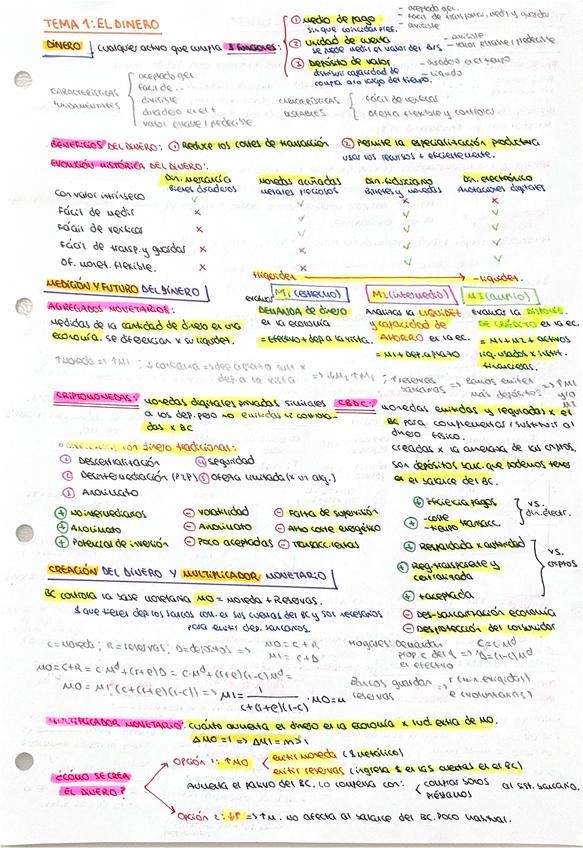 TEMA 1: EL DINERO
DINERO | cualquier activo que cumpla 3 funciones:
① Medio de pago
- aceptado gen.
- fácil de transportar, medir y guardar
- divisible
② Unidad de cuenta
se puede medir el valor del b/s
- divisible
- valor estable / predecible
③ Depósito de valor
- duradero en el tiempo
- líquido
compra a lo largo del tiempo.
CARACTERÍSTICAS FUNDAMENTALES
aceptado gen.
fácil de ..
divisible
duradero en el t
valor estable / predecible
CARACTERÍSTICAS DESEABLES
- fácil de verificar
- oferta flexible y controlas
BENEFICIOS DEL DINERO: ① Reduce los costes de transacción ② Permite la especialización productiva
usar los recursos + eficientemente.
EVOLUCIÓN HISTÓRICA DEL DINERO:
Din. mercancía
Bienes duraderos
Monedas acuñadas
metales preciosos
Din. fiduciario
Billetes y monedas
Din. electrónico
anotaciones digitales
Con valor intrínseco ✓ ✓ × ×
Fácil de medir × ✓ ✓ ✓
Fácil de verificar × ✓ ✓ ✓
Fácil de transp. y guardar × × ✓ ✓
Of. monet. flexible. × × ✓ ✓
+ liquidez → - liquidez.
MEDICIÓN Y FUTURO DEL DINERO
AGREGADOS MONETARIOS:
medidas de la cantidad de dinero en una
economía. se diferencian x su liquidez.
M1 (estrecho)
evalúa
DEMANDA de dinero
en la economía
= Efectivo + dep. a la vista.
M2 (intermedio)
Analizar la LIQUIDEZ
y capacidad de
AHORRO en la ec.
= M1 + dep. a plazo
M3 (amplio)
Evaluar la DISPONIB.
DE CRÉDITO en la ec.
= M1 + M2 + activos
líquidos x instit.
financieras.
CRIPTOMONEDAS: monedas digitales privadas similares
a los dep. pero no emitidas ni controla-
das x BC
CBDC: monedas emitidas y reguladas x el
BC para complementar / sustituir al
dinero físico.
creadas x la amenaza de las criptos.
son depósitos banc. que podemos tener
en el balance del BC.
① Descentralización
② Desintermediación (P2P)
③ Anonimato
④ seguridad
⑤ oferta limitada (x un alg.)
⊕ No intermediarios
⊕ Anonimato
⊕ Potencial de inversión
⊖ Volatilidad
⊖ Anonimato
⊖ Poco aceptadas
⊖ Falta de supervisión
⊖ Alto coste energético
⊕ Eficiencia pagos
vs. din. electr.
⊕ Respaldada x autoridad
⊕ Reg. transparente y
centralizada
⊕ + aceptada
vs. criptos
⊖ Des-bancarización economía
⊖ Desprotección del consumidor
CREACIÓN DEL DINERO Y MULTIPLICADOR MONETARIO
BC controla la base monetaria M0 = moneda + Reservas.
$ que tienen dep. los bancos com. en sus cuentas del BC y son necesarios
para emitir dep. bancarios.
C = moneda; R = reservas; D = depósitos =>
M0 = C + R
M1 = C + D
Hogares: demandan
prop. c del $ =>
en efectivo
C = c·Md
D = (1-c)Md
Bancos guardan =>
reservas
r (min. exigidas)
e (voluntarias)
M0 = C + R = c·Md + (r+e)D = c·Md + (r+e)(1-c)Md
M0 = M1 (c + (r+e)(1-c)) => M1 = 1 / (c + (r+e)(1-c)) · M0 = μ
MULTIPLICADOR MONETARIO: cuánto aumenta el dinero en la economía x 1 ud. extra de M0.
ΔM0 = 1 => ΔM1 = m > 1
¿CÓMO SE CREA
EL DINERO?
OPCIÓN 1: ↑M0
emitir moneda ($ metálico)
emitir reservas (ingresa $ en las cuentas en el BC)
Aumenta el pasivo del BC. Lo compensa con:
comprar bonos
préstamos
al sist. bancario.
OPCIÓN 2: => ↑m. no afecta al balance del BC. Poco habitual.